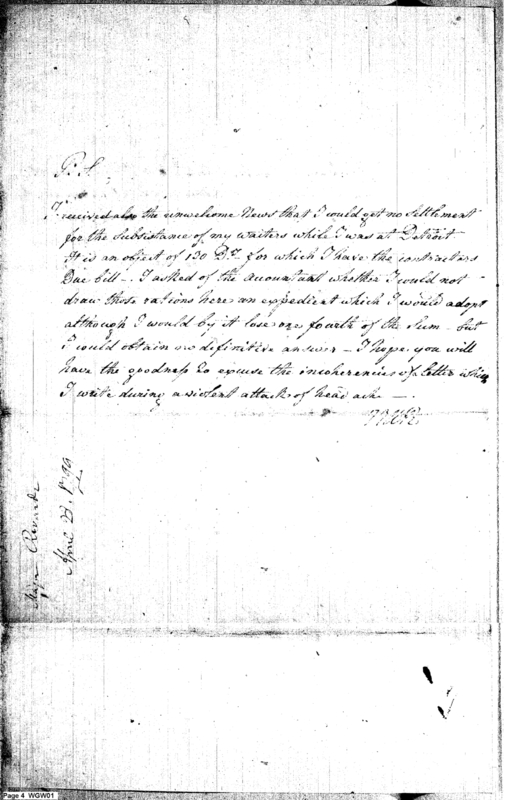 P. S.
I received also the unwelcome News that I could get no Settlement
for the Subsistance of my waiters while I was at Detroit
It is an object of 130 Drs for which I have the contractors
Due bill — I asked of the Accountant whether I could not
draw those rations here an expedient which I would adopt
although I would by it lose one fourth of the Sum — but
I could obtain no definitive answer — I hope you will
have the goodness to excuse the incoherencies of letter which
I write during a violent attack of head ache —
Major Rivardi
April 23, 1799
Page 4 WGW01